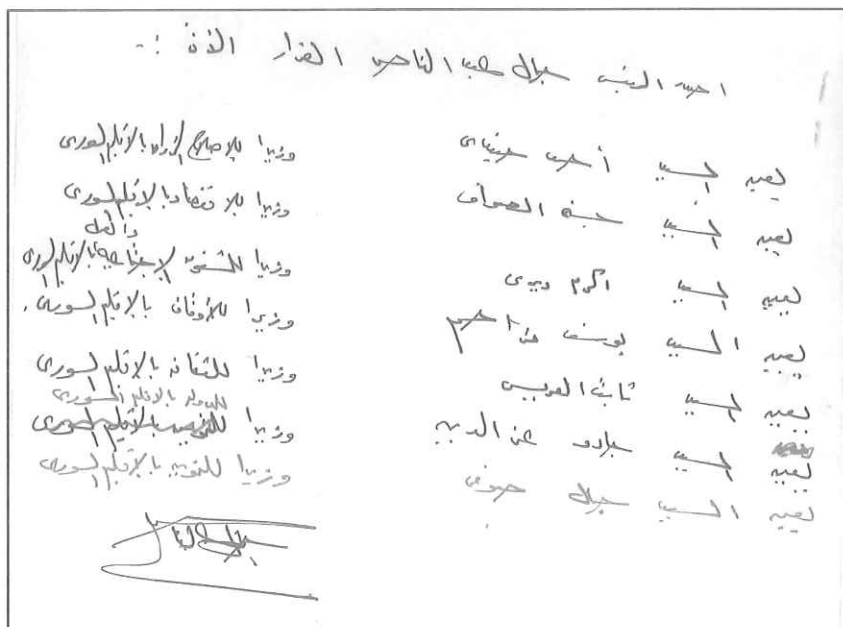 الرئيس جمال عبد الناصر القرار الآتى :-
يعين السيد أحمد وزيرا للإصلاح الزراعى بالإقليم السورى
يعين السيد الصواف وزيرا للاقتصاد بالإقليم السورى
يعين السيد اكرم ديرى وزيرا للشئون الاجتماعية والعمل بالإقليم السورى
يعين السيد يوسف مزاحم وزيرا للأوقاف بالإقليم السورى.
يعين السيد ثابت العريس وزيرا للثقافة بالإقليم السورى
يعين السيد جادو عز الدين وزيرا للدولة بالإقليم السورى
يعين السيد جمال صوفى وزيرا للتموين بالإقليم السورى